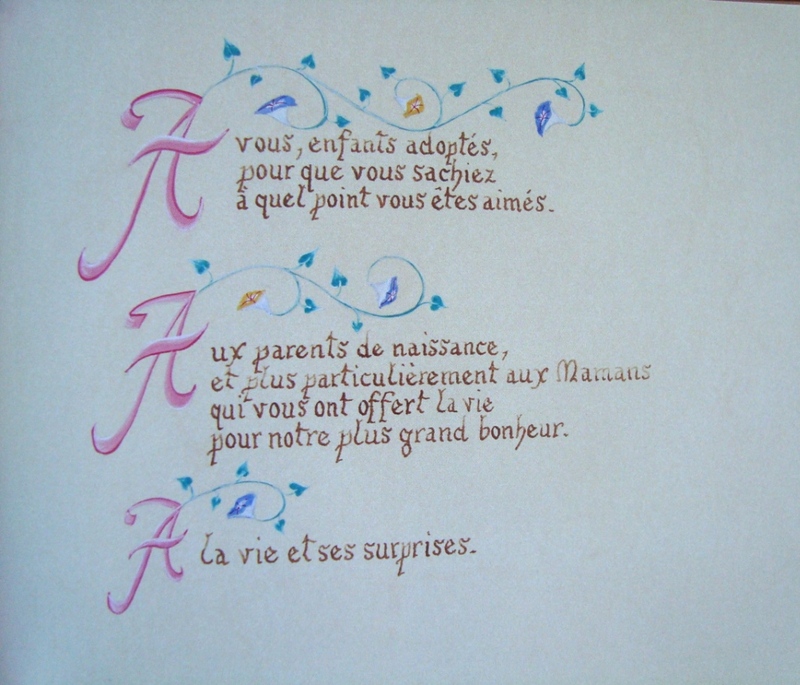 A vous, enfants adoptés,
pour que vous sachiez
à quel point vous êtes aimés.
Aux parents de naissance,
et plus particulièrement aux Mamans
qui vous ont offert la vie
pour notre plus grand bonheur.
A la vie et ses surprises.